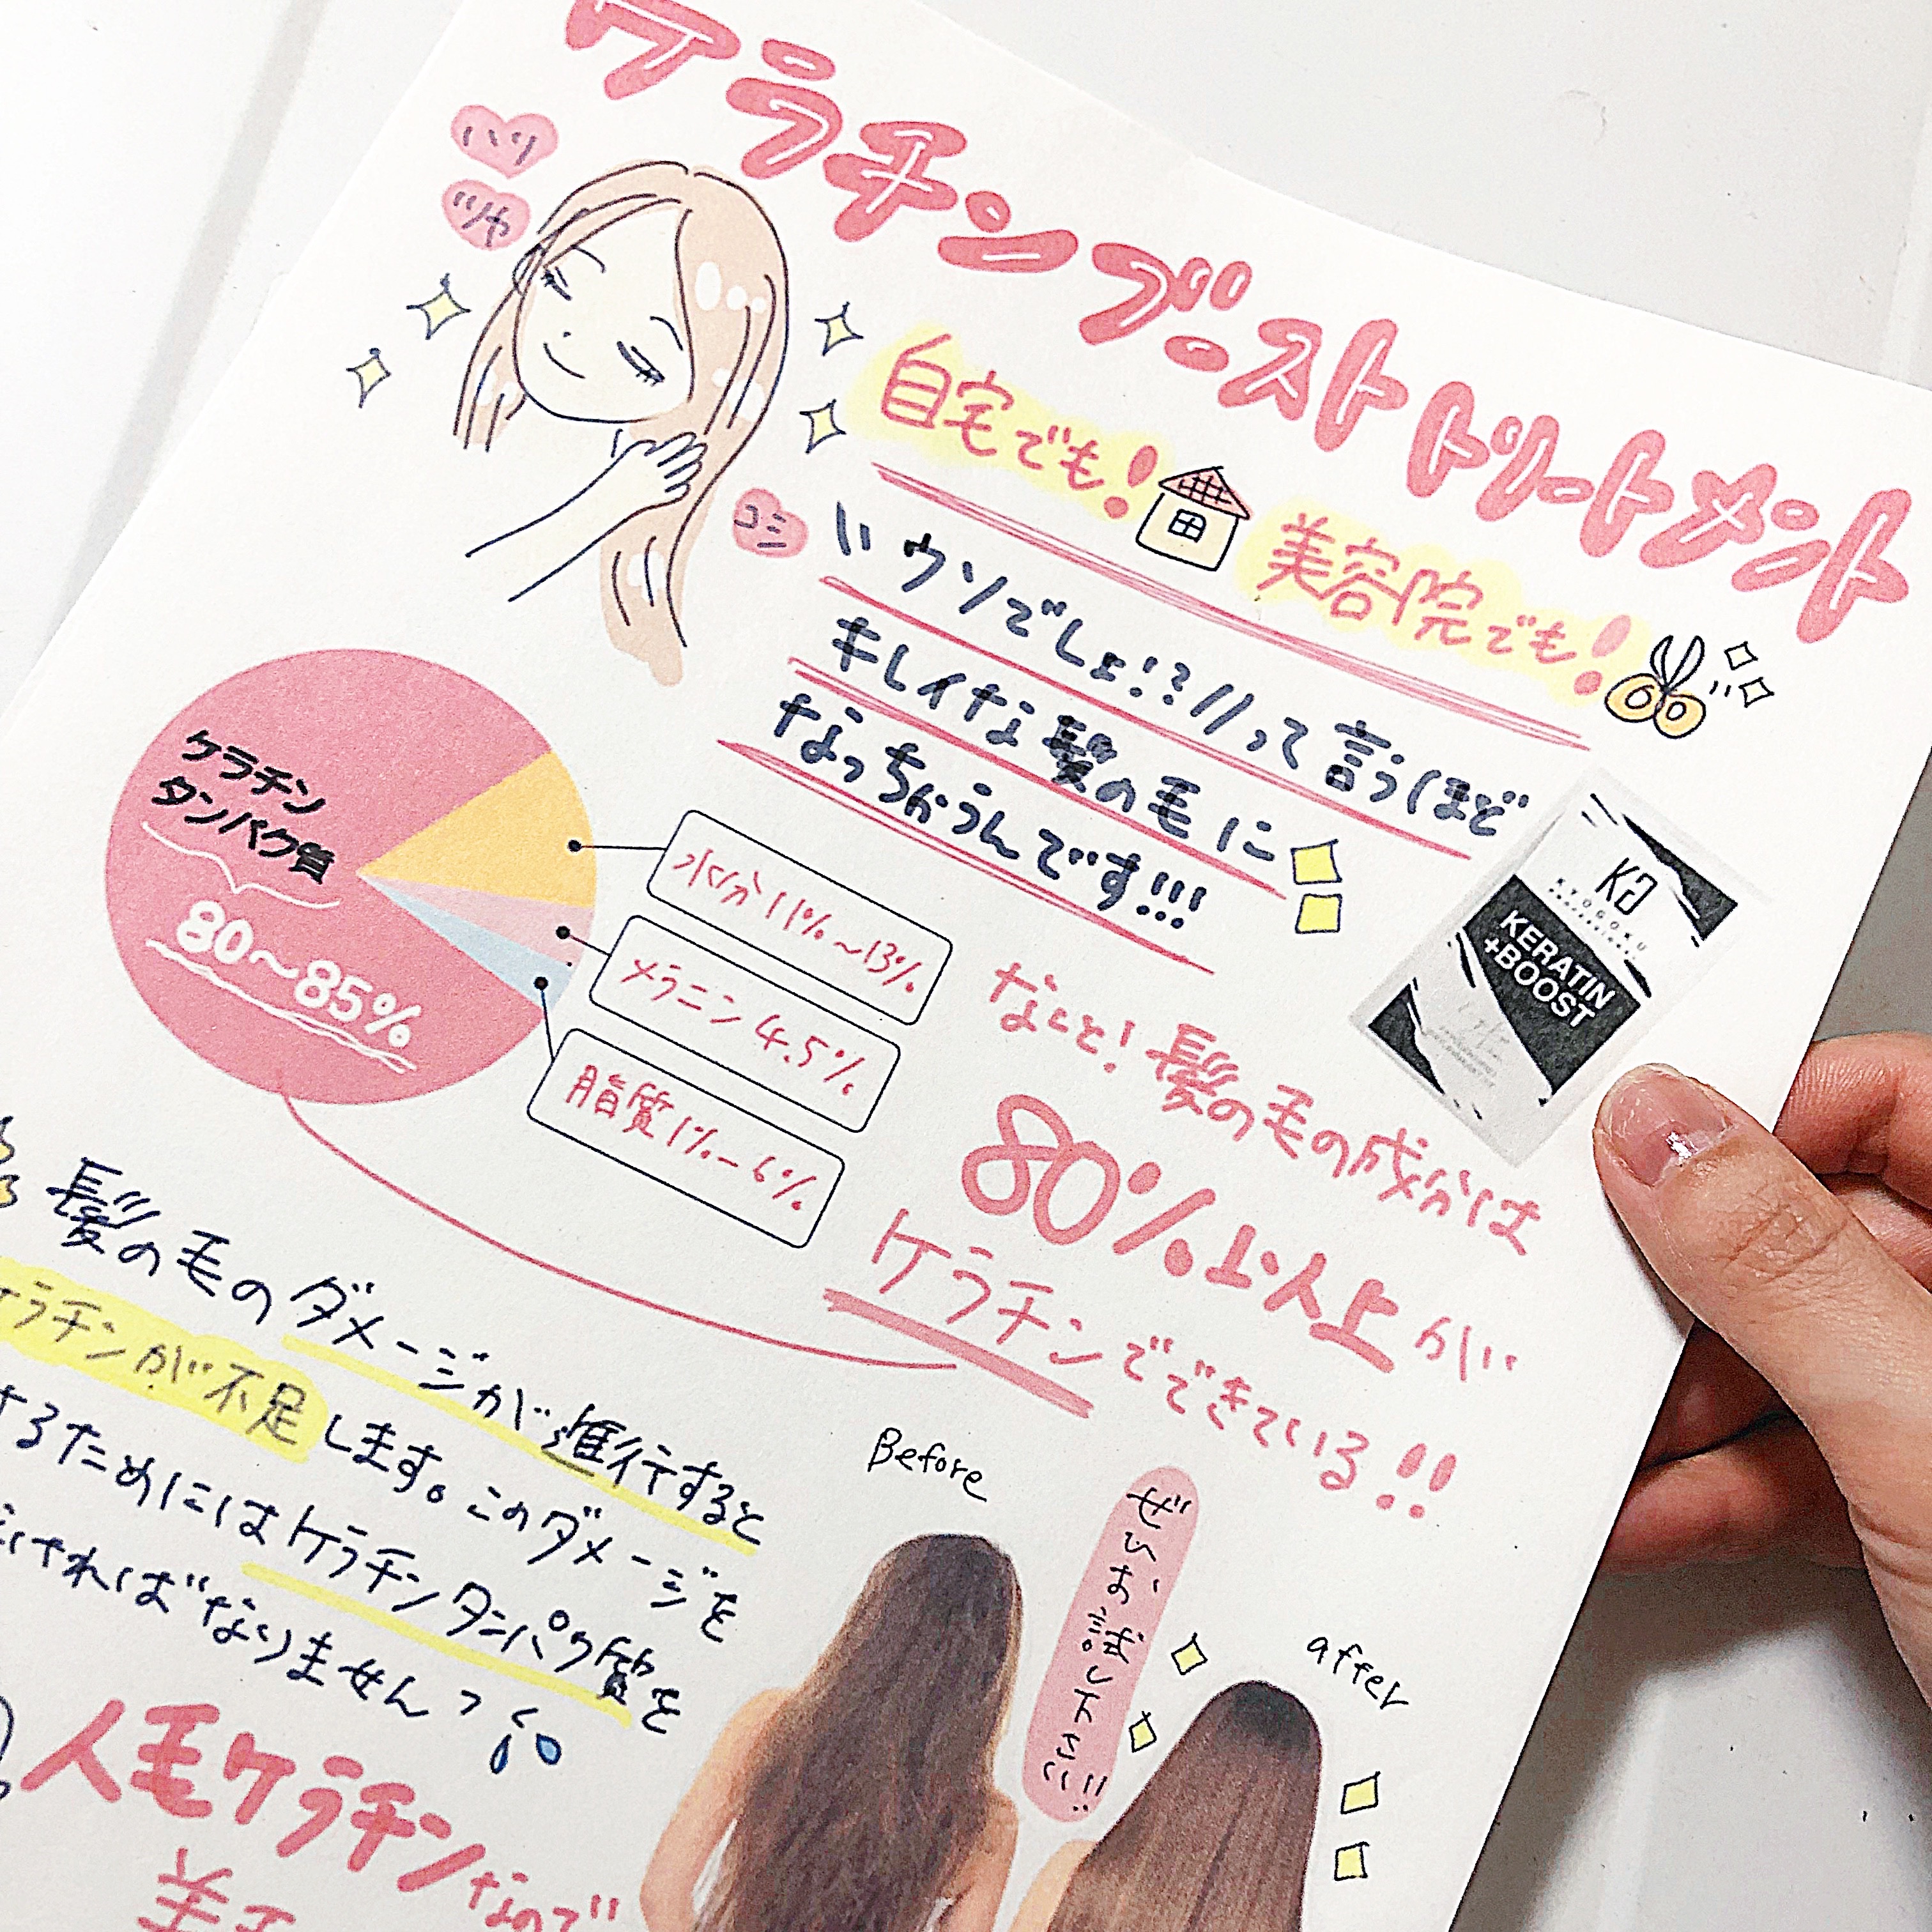 ケラチンブーストトリートメント
ハリ
ツヤ
コシ
自宅でも!
美容院でも!
\\ウソでしょ!?//って言うほど
キレイな髪の毛に
なっちゃうんです!!!
KG
KYOGOKU
PROFESSIONAL
KERATIN
+BOOST
ケラチン
タンパク質
80〜85%
水分11%〜13%
メラニン4.5%
脂質1%〜6%
なんと!髪の毛の成分は
80%以上が
ケラチンでできている!!
髪の毛のダメージが進行すると
ケラチンが不足します。このダメージを
するためにはケラチンタンパク質を
ければなりません
Before
ぜひお試し下さい!!
after
人毛ケラチンなので